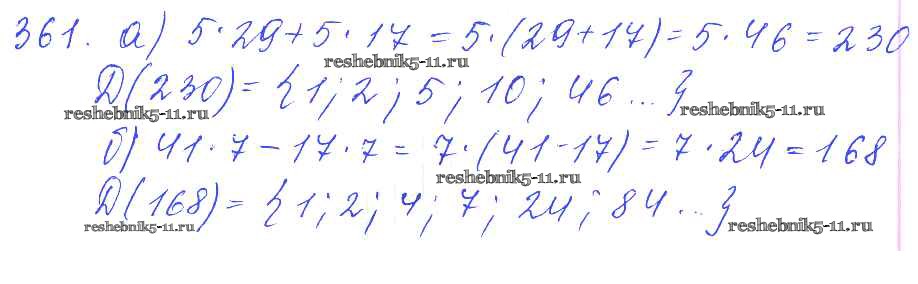 361. а) 5·29+5·17=5·(29+17)=5·46=230
reshebnik5-11.ru
Д(230)={1;2;5;10;46...}
reshebnik5-11.ru reshebnik5-11.ru
б) 41·7-17·7=7·(41-17)=7·24=168
reshebnik5-11.ru
Д(168)={1;2;4;7;24;84...}
reshebnik5-11.ru reshebnik5-11.ru